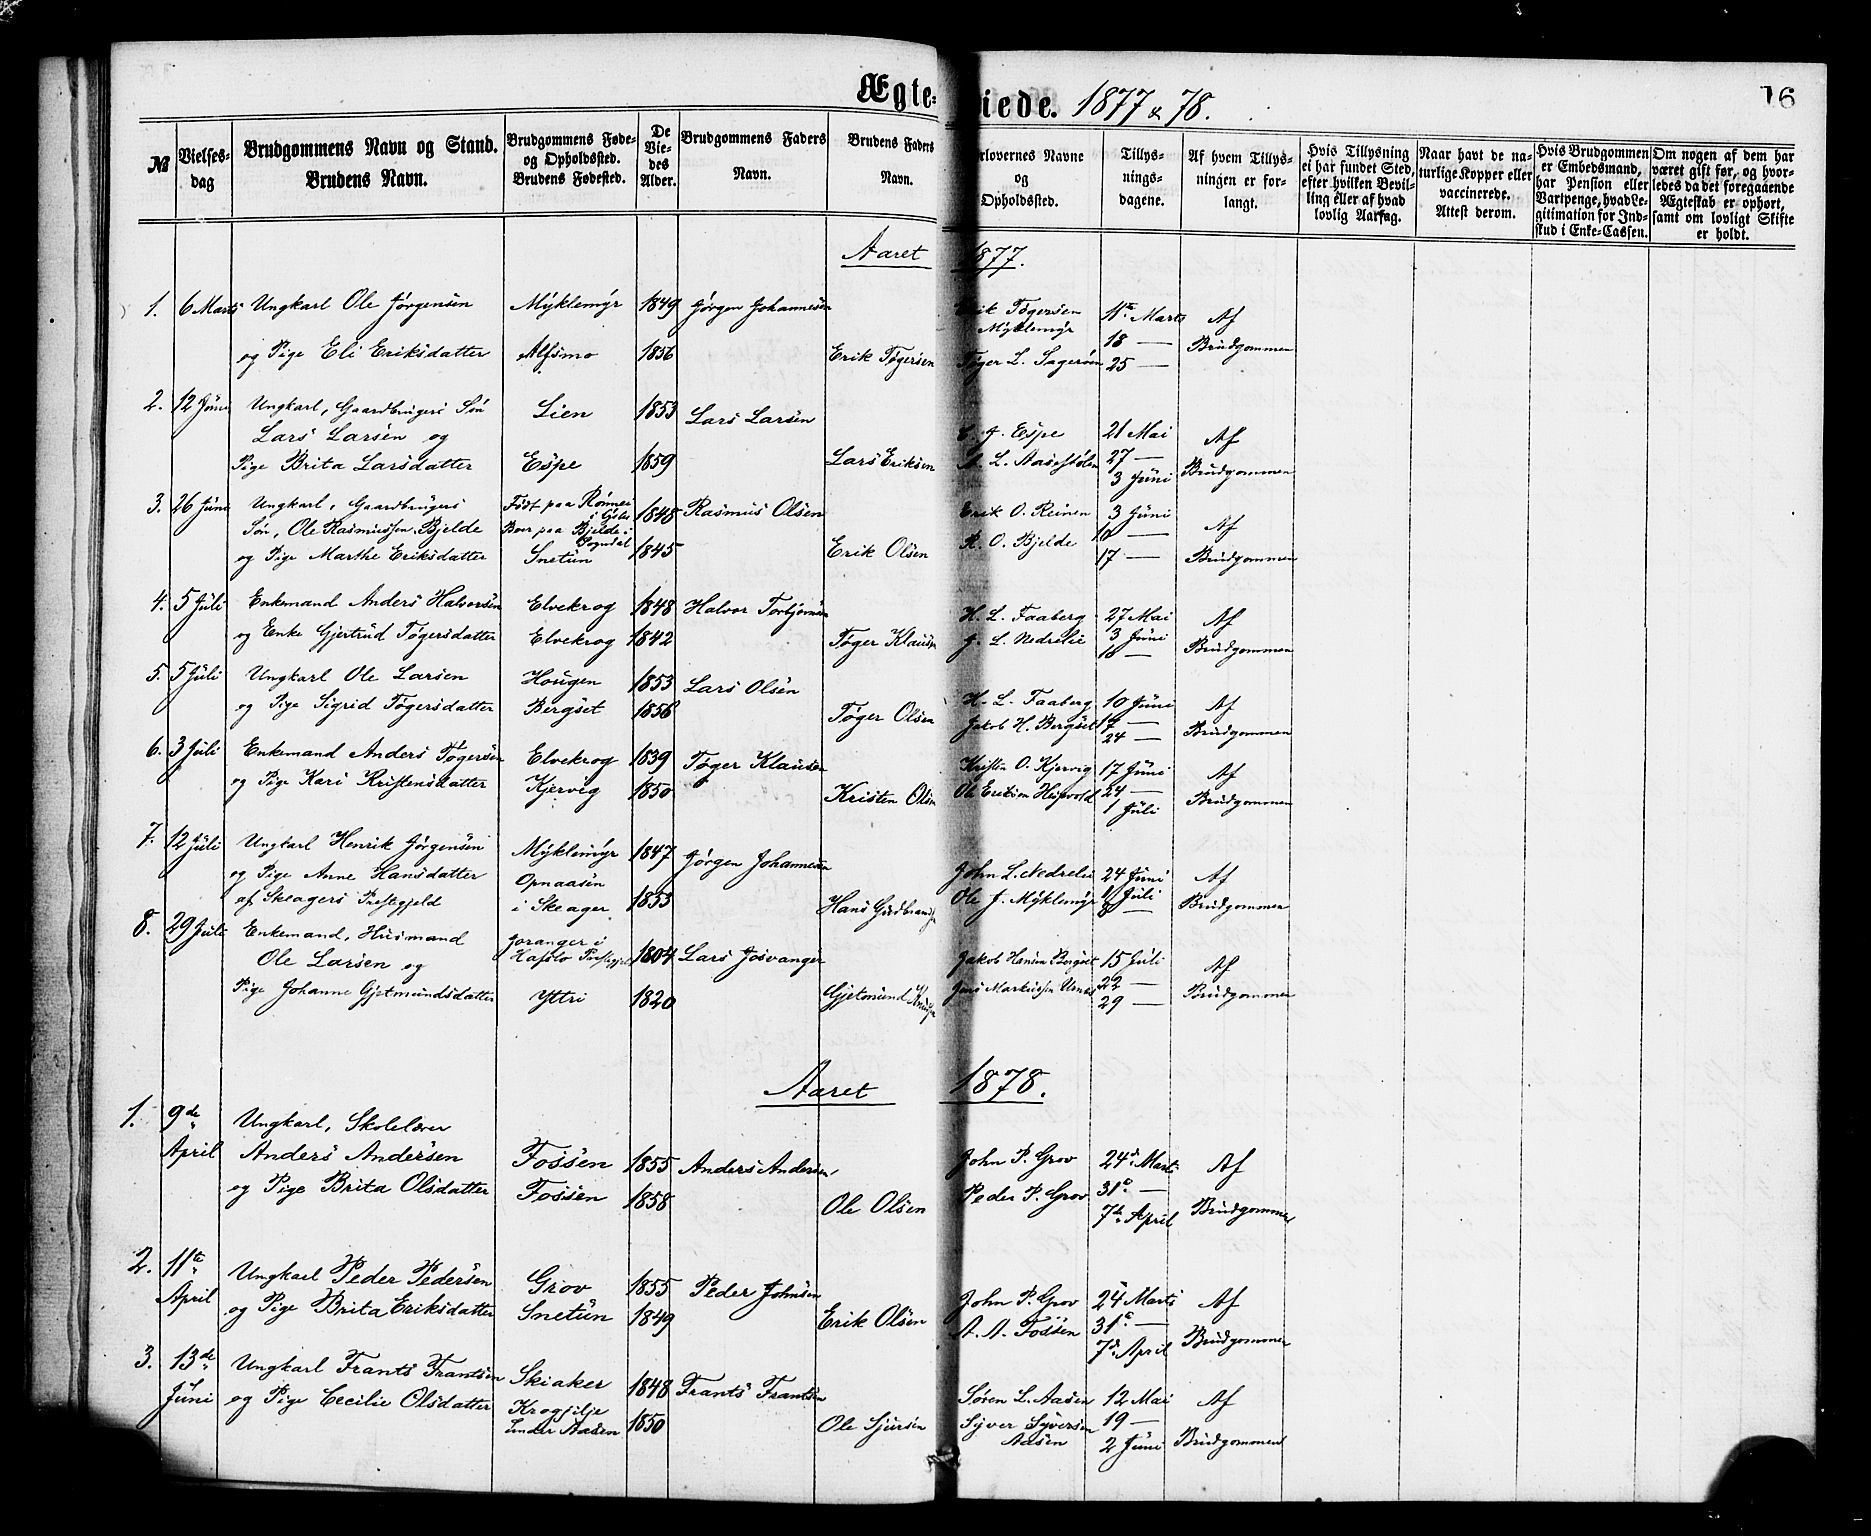 Ægte-
iede. 1877 & 78.
16
№
Vielses-
dag
Brudgommens Navn og Stand.
Brudens Navn.
Brudgommens Føde-
og Opholdssted.
Brudens Fødested.
De
Vie-
des
Alder.
Brudgommens Faders
Navn.
Brudens Faders
Navn.
rlovernes Navne
og
Opholdssted.
Tillys-
nings-
dagene.
Af hvem Tillys-
ningen er for-
langt.
Hvis Tillysning
ei har fundet Sted,
efter hvilken Bevil-
ling eller af hvad
lovlig Aarsag.
Naar havt de na-
turlige Kopper eller
vaccinerede.
Attest derom.
Hvis Brudgommen
er Embedsmand,
har Pension eller
Vartpenge, hvad Le-
gitimation for Ind-
skud i Enke-Cassen.
Om nogen af dem har
været gift før, og hvor-
ledes da det foregaaende
Ægteskab er ophørt,
samt om lovligt Skifte
er holdt.
Aaret 1877.
1. 6 Marts Ungkarl Ole Jørgensen Myklemyr 1849 Jørgen Johannesen
og Pige Eli Eriksdatter Alsmo 1856 Erik Tøgersen
Erik Tøgersen
Myklemyr
Tøger L.
Marts
18 —
25 —
Af
Brudgommen
2. 12 Juni Ungkarl, Gaardbrugers Søn Lien 1853 Lars Larsen
Lars Larsen og
Pige Brita Larsdatter Espe 1859 Lars Eriksen
J. Espe
L.
21 Mai
27 —
3 Juni
Af
Brudgommen
3. 26 Juni Ungkarl, Gaardbrugers Født paa Rønnei 1848 Rasmus Olsen
Søn, Ole Rasmussen Bjelde Boer paa Bjelde i
Sogndal
og Pige Marthe Eriksdatter Snetun 1845 Erik Olsen
Erik O. Reinen
R. O. Bjelde
3 Juni
10 —
17 —
Af
Brudgommen
4. 5 Juli Enkemand Anders Halvorsen Elvekrog 1848 Halvor Torbjørnsen
og Enke Gjertrud Tøgersdatter Elvekrog 1842 Tøger Klausen
H. L. Faaberg
J. L. Nedrelie
27 Mai
3 Juni
10 —
Af
Brudgommen
5. 5 Juli Ungkarl Ole Larsen Hougen 1853 Lars Olsen
og Pige Sigrid Tøgersdatter Bergset 1856 Tøger Olsen
H. L. Faaberg
Jakob H. Bergset
10 Juni
17 —
24 —
Af
Brudgommen
6. 3 Juli Enkemand Anders Tøgersen Elvekrog 1839 Tøger Klausen
og Pige Kari Kristensdatter Kjervig 1850 Kristen Olsen
Kristen O. Kjervig
Ole Eriksen
17 Juni
24 —
1 Juli
Af
Brudgommen
7. 12 Juli Ungkarl Henrik Jørgensen Myklemyr 1847 Jørgen Johannesen
og Pige Anne Hansdatter Opnaasen
af Skeagers Præstegjeld i Skeager 1853 Hans Gudbrandsen
John L. Nedrelie
Ole J. Myklemyr
24 Juni
1 Juli
8 —
Af
Brudgommen
8. 29 Juli Enkemand, Husmand Joranger i
Ole Larsen og Hafslo Præstegjeld 1804 Lars Josvanger
Pige Johanne Gjetmundsdatter Yttri 1820 Gjetmund
Jakob Hansen Bergset
Jens Markussen
15 Juli
22 —
29 —
Af
Brudgommen
Aaret 1878.
1. 9de Ungkarl, Skolelærer
April Anders Andersen Fossen 1855 Anders Andersen
og Pige Brita Olsdatter Fossen 1858 Ole Olsen
John P. Grov
Peder P. Grov
24de Marts
31te —
7de April
Af
Brudgommen
2. 11te Ungkarl Peder Pedersen Grov 1855 Peder Johnsen
April og Pige Brita Eriksdatter Snetun 1849 Erik Olsen
John P. Grov
A. A. Fossen
24 Marts
31te —
7de April
Af
Brudgommen
3. 13de Ungkarl Frants Frantsen Skiaker 1848 Frants Frantsen
Juni og Pige Cecilie Olsdatter Krogjilje
under Aasen 1850 Ole Sjursen
Søren L. Aasen
Syver Syversen
Aasen
12 Mai
19 —
2 Juni
Af
Brudgommen